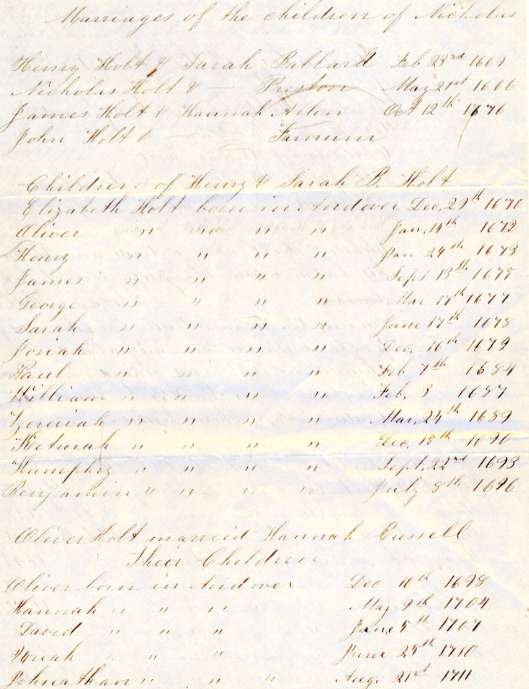 Marriages of the children of Nicholas
Henry Holt & Sarah Ballard Feb 23rd 1669
Nicholas Holt & — Preston May 21st 1666
James Holt & Hannah Allen Oct 12th 1676
John Holt & — Farnum
Children of Henry & Sarah B. Holt
Elizabeth Holt born in Andover Dec. 29th 1670
Oliver " " " " Jan. 14th 1672
Henry " " " Jan 24th 1673
James " " " " Sept 13th 1675
George " " " " Mar 17th 1677
Sarah " " " " June 17th 1678
Josiah " " " " Dec. 16th 1679
Paul " " " " Feb 7th 1684
William " " " " Feb. 3 1687
Zeruiah " " " " Mar. 24th 1689
Keturah " " " " Dec. 15th 1690
Humphry " " " " Sept. 22nd 1693
Benjamin " " " " July 8th 1696
Oliver Holt married Hannah Russell
Their Children
Oliver born in Andover Dec 10th 1698
Hannah " " " May 9th 1704
David " " " June 5th 1707
" " " June 25th 1710
Johnathan " " " Aug. 21st 1711